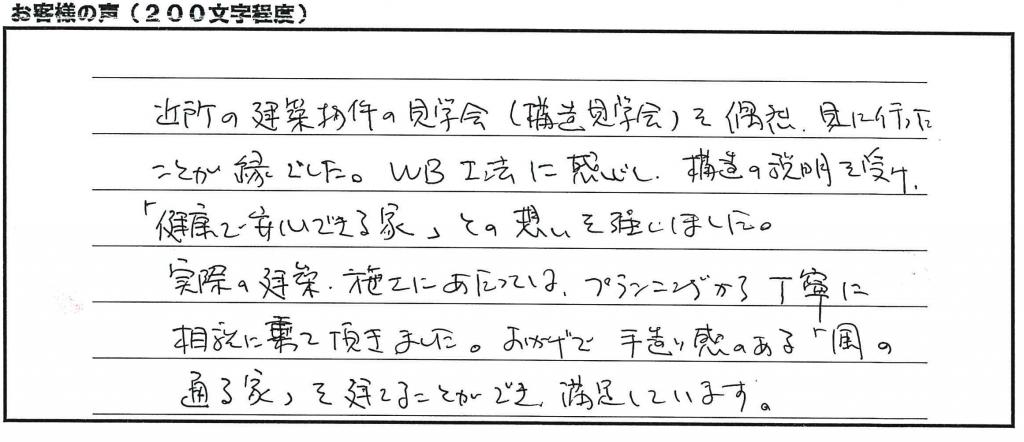 お客様の声（２００文字程度）
近所の建築物件の見学会（構造見学会）を偶然、見に行った
ことが縁でした。WB工法に感心し、構造の説明を受け、
「健康で安心できる家」との想いを強くしました。
実際の建築・施工にあたっては、プランニングから丁寧に
相談に乗って頂きました。おかげで手造り感のある「風の
通る家」を建てることができ、満足しています。